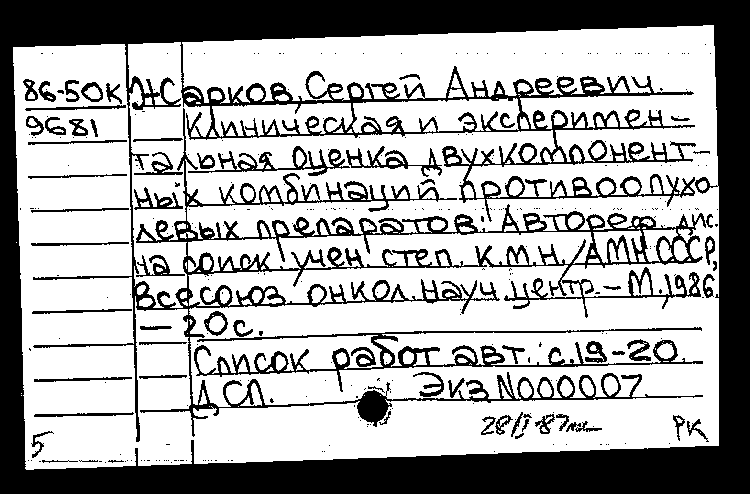 86-50К Жарков, Сергей Андреевич.
9681 Клиническая и эксперимен-
тальная оценка двухкомпонент-
ных комбинаций противоопухо
левых препаратов: Автореф. дис.
на соиск. учен. степ. к.м.н./АМН СССР,
Всесоюз. онкол. науч. центр. – М., 1986.
– 20 с.
Список работ авт.: с.19-20.
ДСП. Экз N000007.
28/II-87
5 РК